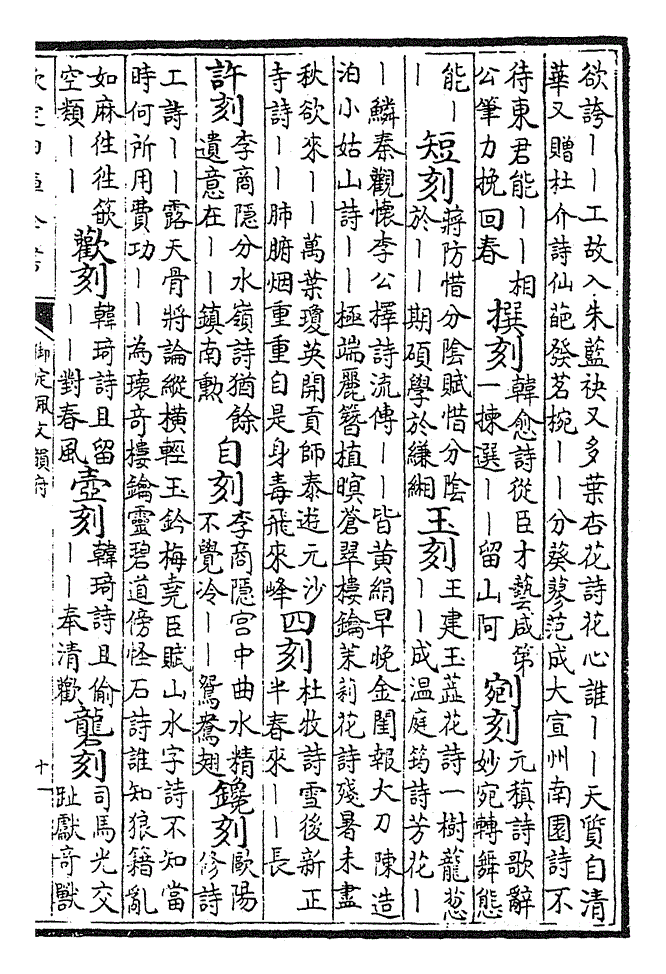 欲誇丨丨工故入朱藍袂又多葉杏花詩花心誰丨丨天質自清
華又贈杜介詩仙葩發茗椀丨丨分葵蓼范成大宣州南園詩不
待東君能丨丨相
公筆力挽回春
撰刻
韓愈詩從臣才藝咸第
一揀選丨丨留山阿
剜刻
元稹詩歌辭
妙宛轉舞態
能丨
丨
短刻
蔣防惜分陰賦惜分陰
於丨丨期碩學於縑緗
玉刻
王建玉蕋花詩一樹蘢葱
丨丨成温庭筠詩芳花丨
丨鱗秦觀懷李公擇詩流傳丨丨皆黄絹早晚金閨報大刀陳造
泊小姑山詩丨丨極端麗簪植暝蒼翠樓鑰茉莉花詩殘暑未盡
秋欲來丨丨萬葉瓊英開貢師泰遊元沙
寺詩丨丨肺腑烟重重自是身毒飛來峰
四刻
杜牧詩雪後新正
半春來丨丨長
許刻
李商隱分水嶺詩猶餘
遺意在丨丨鎮南勲
自刻
李商隱宫中曲水精
不覺冷丨丨鴛鴦翅
鑱刻
歐陽
修詩
工詩丨丨露天骨將論縱橫輕玉鈐梅堯臣賦山水字詩不知當
時何所用費功丨丨為瓌奇樓鑰靈碧道傍怪石詩誰知狼籍亂
如麻徃徃欲
空類丨丨
歡刻
韓琦詩且留
丨丨對春風
壺刻
韓琦詩且偷
丨丨奉清歡
礱刻
司馬光交
趾獻奇獸
欽定四庫全書
御定佩文韻府
十一